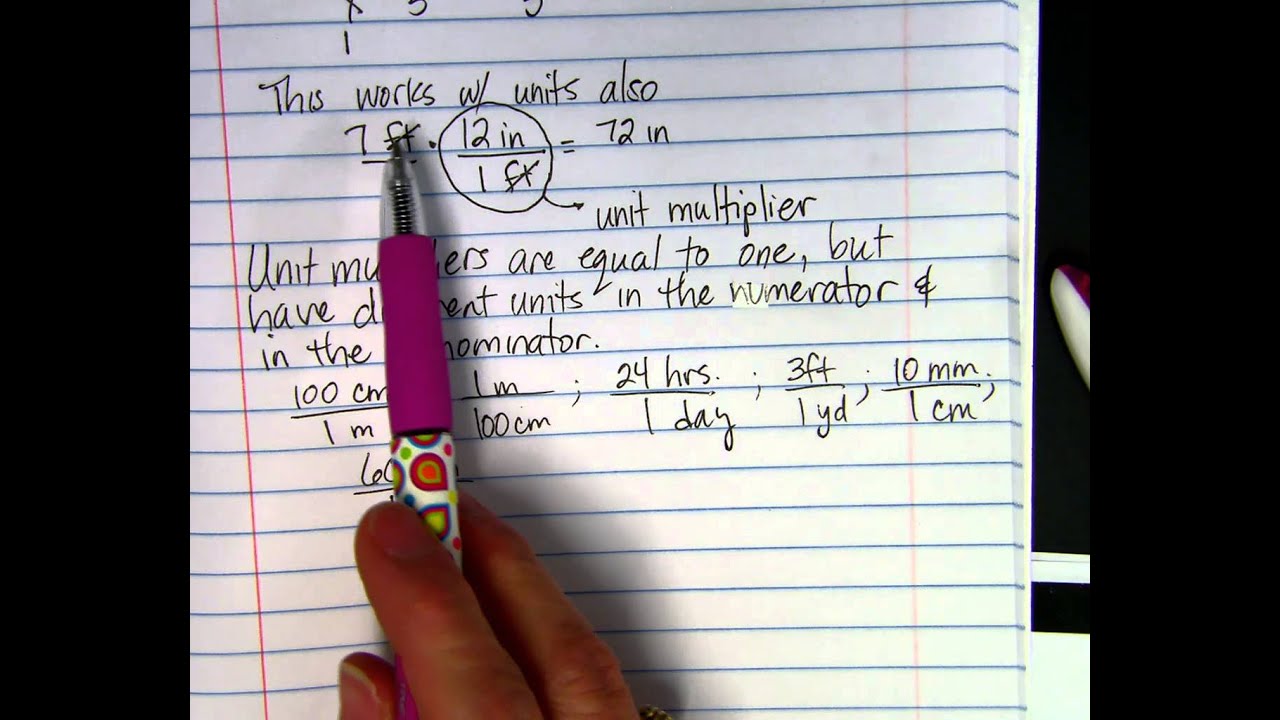 1
This works w/ units also
7 ft · 12 in / 1 ft = 72 in
unit multiplier
Unit are equal to one, but
have units in the numerator &
in the
100 cm / 1 m 1 m / 100 cm ; 24 hrs. / 1 day ; 3ft / 1 yd ; 10 mm. / 1 cm ,